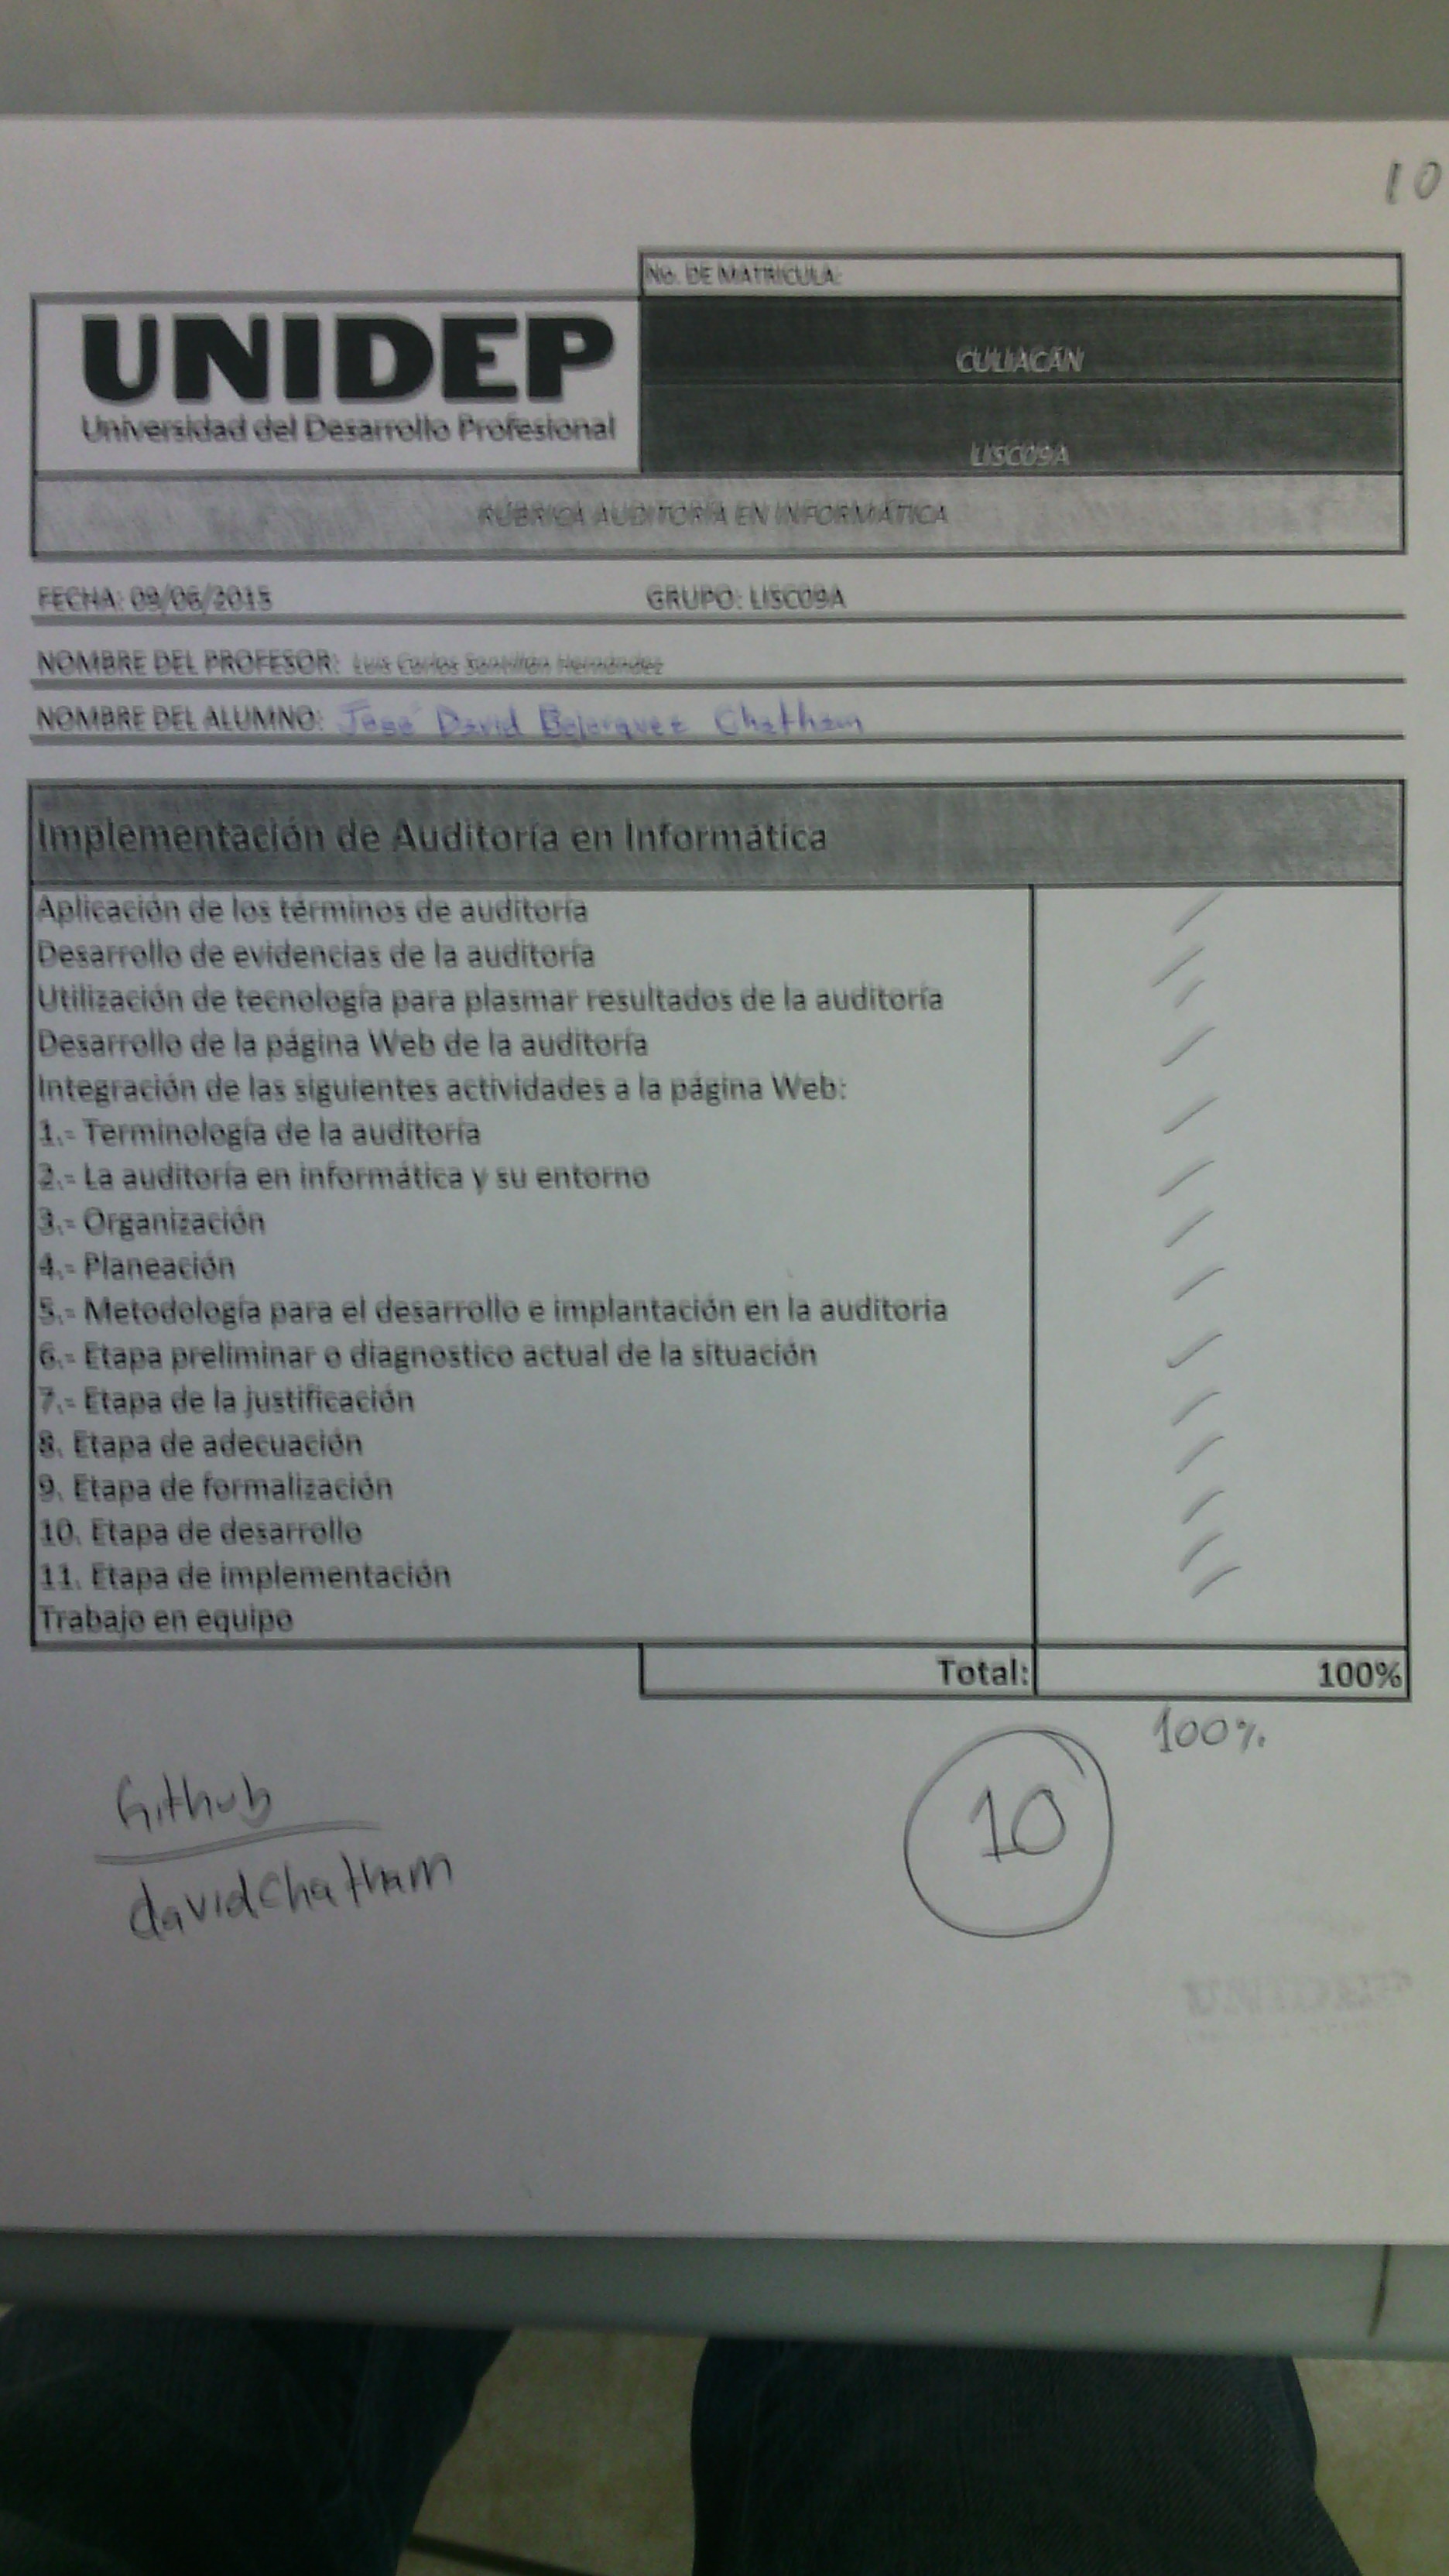 10
No. DE MATRICULA:
UNIDEP
Universidad del Desarrollo Profesional
CULIACÁN
LISC09A
RÚBRICA AUDITORÍA EN INFORMÁTICA
FECHA: 09/06/2015 GRUPO: LISC09A
NOMBRE DEL PROFESOR: Luis Carlos Santillán Hernández
NOMBRE DEL ALUMNO: José David Bojorquez Chatham
Implementación de Auditoría en Informática
Aplicación de los términos de auditoría
Desarrollo de evidencias de la auditoría
Utilización de tecnología para plasmar resultados de la auditoría
Desarrollo de la página Web de la auditoría
Integración de las siguientes actividades a la página Web:
1.- Terminología de la auditoría
2.- La auditoría en informática y su entorno
3.- Organización
4.- Planeación
5.- Metodología para el desarrollo e implantación en la auditoria
6.- Etapa preliminar o diagnostico actual de la situación
7.- Etapa de la justificación
8. Etapa de adecuación
9. Etapa de formalización
10. Etapa de desarrollo
11. Etapa de implementación
Trabajo en equipo
Total: 100%
100%
10
Github
davidChatham